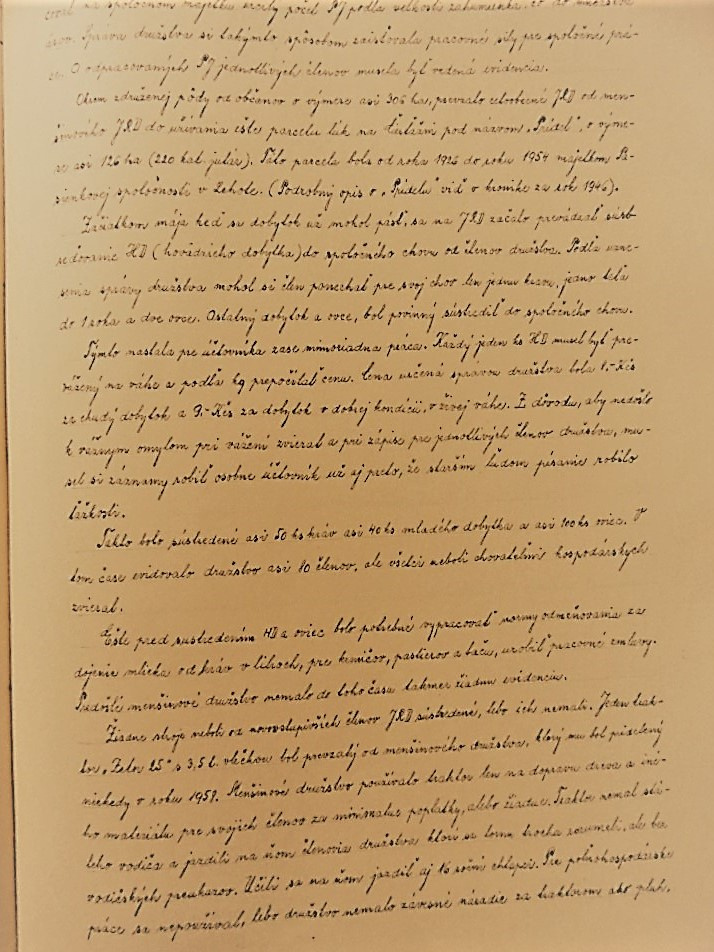 coval na spoločnom majetku určitý počet PJ podľa veľkosti záhumienka, čo do množstva
árov. Správa družstva si takýmto spôsobom zaisťovala pracovné sily pre spoločné prá-
ce. O odpracovaných PJ jednotlivých členov musela byť vedená evidencia.
Okrem združenej pôdy od občanov o výmere asi 306 ha, prevzalo celoobecné JRD od men-
šinového JRD do užívania ešte parcelu lúk na pod názvom „Prídel", o výme-
re asi 126 ha (220 kat. jutár). Táto parcela bola od roku 1926 do roku 1954 majetkom Pa-
sienkovej spoločnosti v Lehote. (Podrobný opis o „Prídelu" viď v kronike za rok 1946).
Začiatkom mája keď sa dobytok už mohol pásť, sa na JRD začalo prevádzať sústr-
reďovanie HD (hovädzieho dobytka) do spoločného chovu od členov družstva. Podľa uzne-
senia správy družstva mohol si člen ponechať pre svoj chov len jednu kravu, jedno teľa
do 1 roka a dve ovce. Ostatný dobytok a ovce, bol povinný sústrediť do spoločného chovu.
Týmto nastala pre účtovníka zase mimoriadna práca. Každý jeden ks HD musel byť pre-
vážený na váhe a podľa kg prepočítať cenu. Cena určená správou družstva bola 8.- Kčs
za chudý dobytok a 9.- Kčs za dobytok v dobrej kondícii, v živej váhe. Z dôvodu, aby nedošlo
k vážnym omylom pri vážení zvierat a pri zápise pre jednotlivých členov družstva, mu-
sel si záznamy robiť osobne účtovník už aj preto, že starším ľuďom písanie robilo
ťažkosti.
Takto bolo sústredené asi 50 ks kráv asi 40 ks mladého dobytka a asi 100 ks oviec. V
tom čase evidovalo družstvo asi 80 členov, ale všetci neboli chovateľmi hospodárskych
zvierat.
Ešte pred sústredením HD a oviec bolo potrebné vypracovať normy odmeňovania za
dojenie mlieka od kráv v litroch, pre kŕmičov, pastierov a baču, urobiť pracovné zmluvy.
Predošlé menšinové družstvo nemalo do toho času takmer žiadnu evidenciu.
Žiadne stroje neboli od novovstúpivších členov JRD sústredené, lebo ich nemali. Jeden trak-
tor „Zetor 25" s 3,5 t. vlečkou bol prevzatý od menšinového družstva, ktorý mu bol pridelený
niekedy v roku 1958. Menšinové družstvo používalo traktor len na dopravu dreva a iné-
ho materiálu pre svojich členov za minimálne poplatky, alebo žiadne. Traktor nemal stá-
leho vodiča a jazdili na ňom členovia družstva ktorí sa tomu trocha rozumeli, ale bez
vodičských preukazov. Učili sa na ňom jazdiť aj 16 roční chlapci. Pre poľnohospodárske
práce sa nepoužíval, lebo družstvo nemalo závesné náradie za traktorom ako pluh,